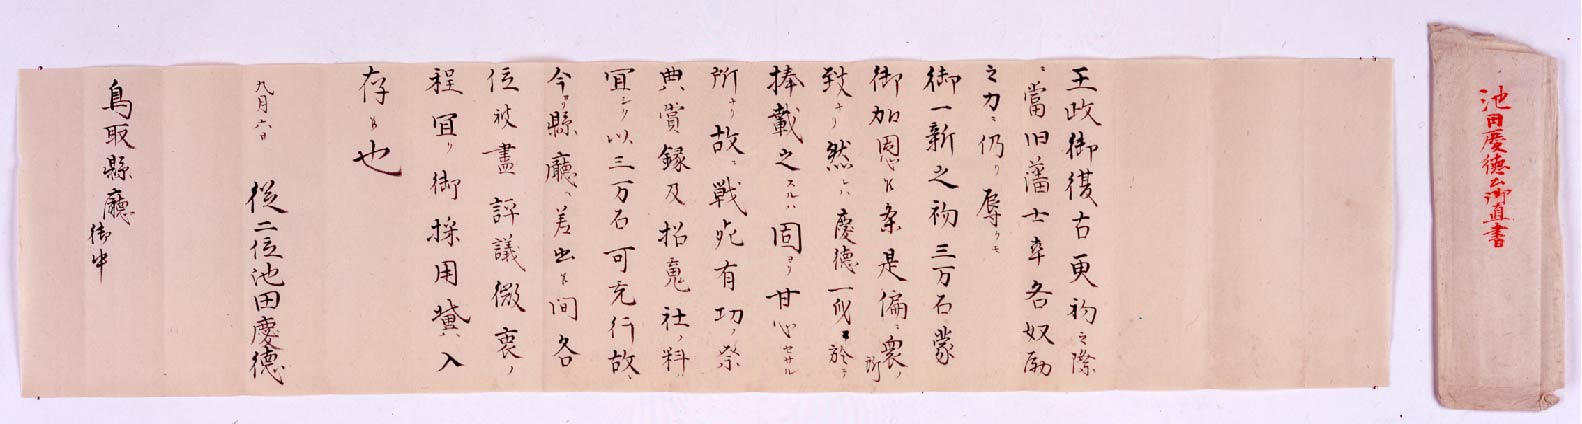 王政御復古更初之際
ニ當旧藩士卒各奴励
之力ニ仍リ辱クモ
御一新之初三万石蒙
御加恩候条是偏ニ衆ノ所
致ナリ然レハ慶徳一身ニ於テ
捧戴之スルハ固ヨリ甘心セサル
所ナリ故ニ戦死有功ノ祭
典賞録及招魂社ノ料
宜シク以三万石可充行故ニ
今ヨリ縣廳ヘ差出候間各
位被盡評議微衷ノ
程宜ク御採用冀入
存候也
九月六日
従二位池田慶徳
鳥取縣廳
御中
池田慶徳公御直書